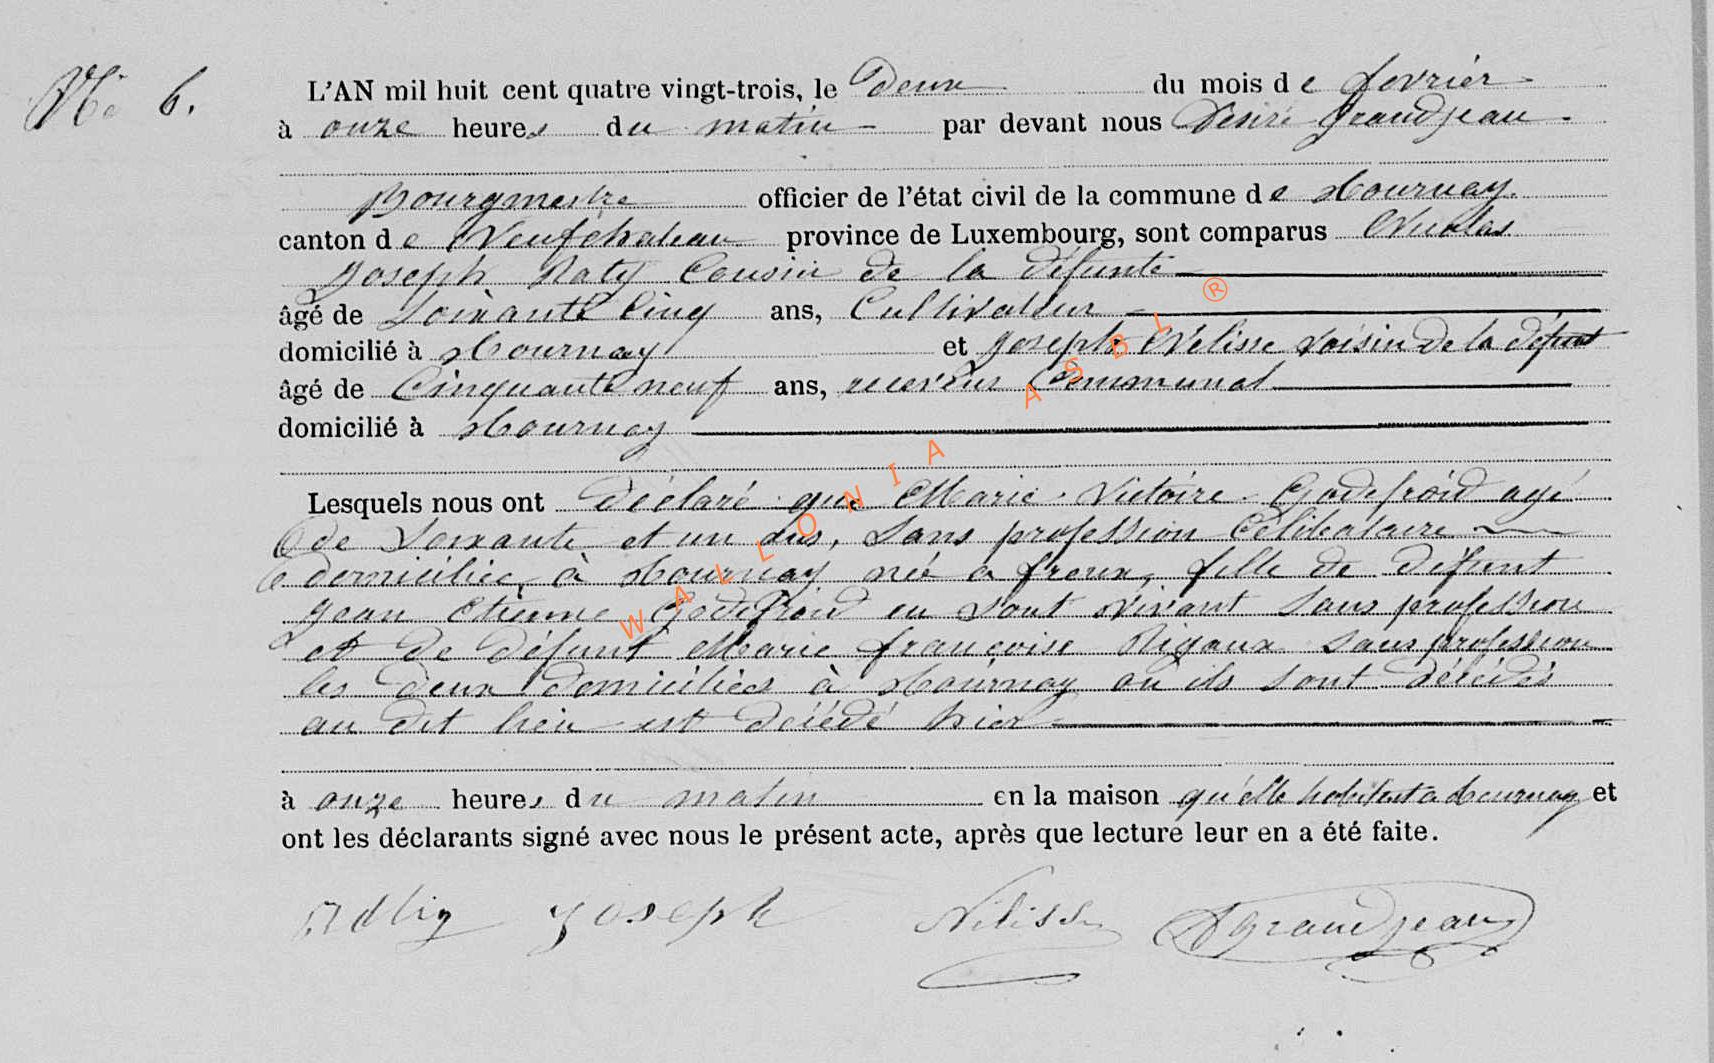 No 6.
L'AN mil huit cent quatre vingt-trois, le Deux du mois de fevrier
à onze heures du matin par devant nous Desiré Grandjean
Bourgmestre officier de l'état civil de la commune de Tournay
canton de Neufchateau province de Luxembourg, sont comparus Nicolas
Joseph Raty Cousin de la défunte
âgé de Soixante Cinq ans, Cultivateur
domicilié à Tournay et Joseph Nelisse voisin de la défunt
âgé de Cinquante neuf ans, receveur Communal
domicilié à Tournay
Lesquels nous ont déclaré que Marie Victoire Godefroid agé
de Soixante et un ans, Sans profession Célibataire
domiciliée à Tournay née a freux, fille de défunt
Jean Etienne Godefroid en Sont vivant Sans profession
et de défunt Marie françoise Rigaux Sans profession
les deux domiciliés à Tournay ou ils sont décédés
au dit lieu est décédé hier
à onze heures du matin en la maison qu'elle habitent a Tournay et
ont les déclarants signé avec nous le présent acte, après que lecture leur en a été faite.
Joseph Nélisse D Grandjean
WALLONIA ASBL ®